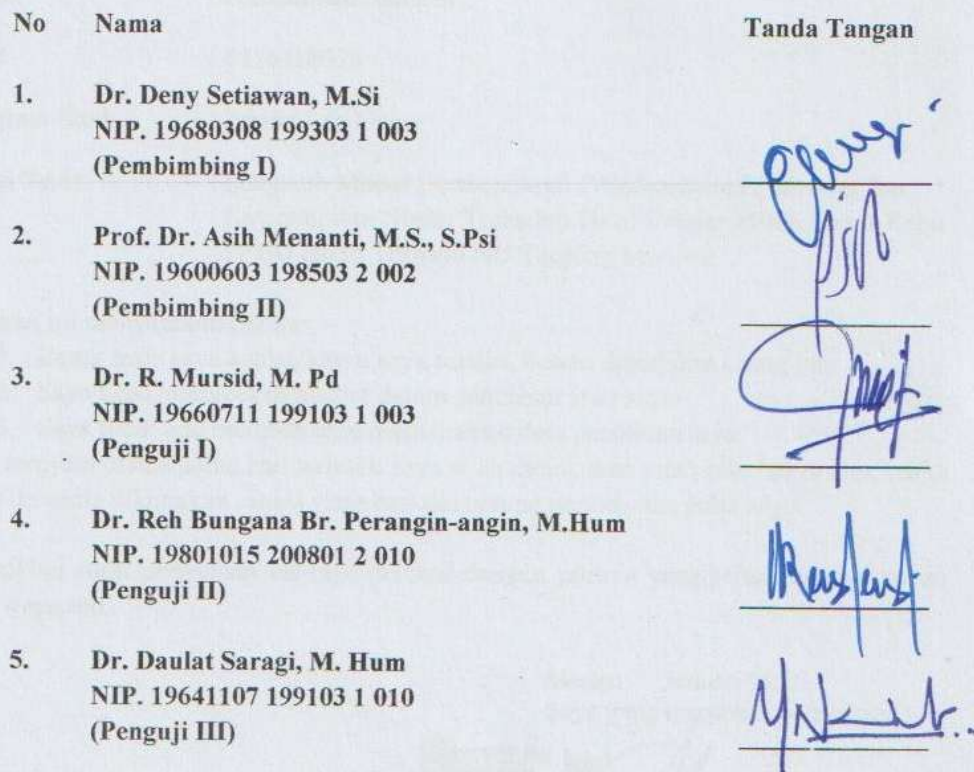 No Nama Tanda Tangan
1. Dr. Deny Setiawan, M.Si
NIP. 19680308 199303 1 003
(Pembimbing I)
2. Prof. Dr. Asih Menanti, M.S., S.Psi
NIP. 19600603 198503 2 002
(Pembimbing II)
3. Dr. R. Mursid, M. Pd
NIP. 19660711 199103 1 003
(Penguji I)
4. Dr. Reh Bungana Br. Perangin-angin, M.Hum
NIP. 19801015 200801 2 010
(Penguji II)
5. Dr. Daulat Saragi, M. Hum
NIP. 19641107 199103 1 010
(Penguji III)